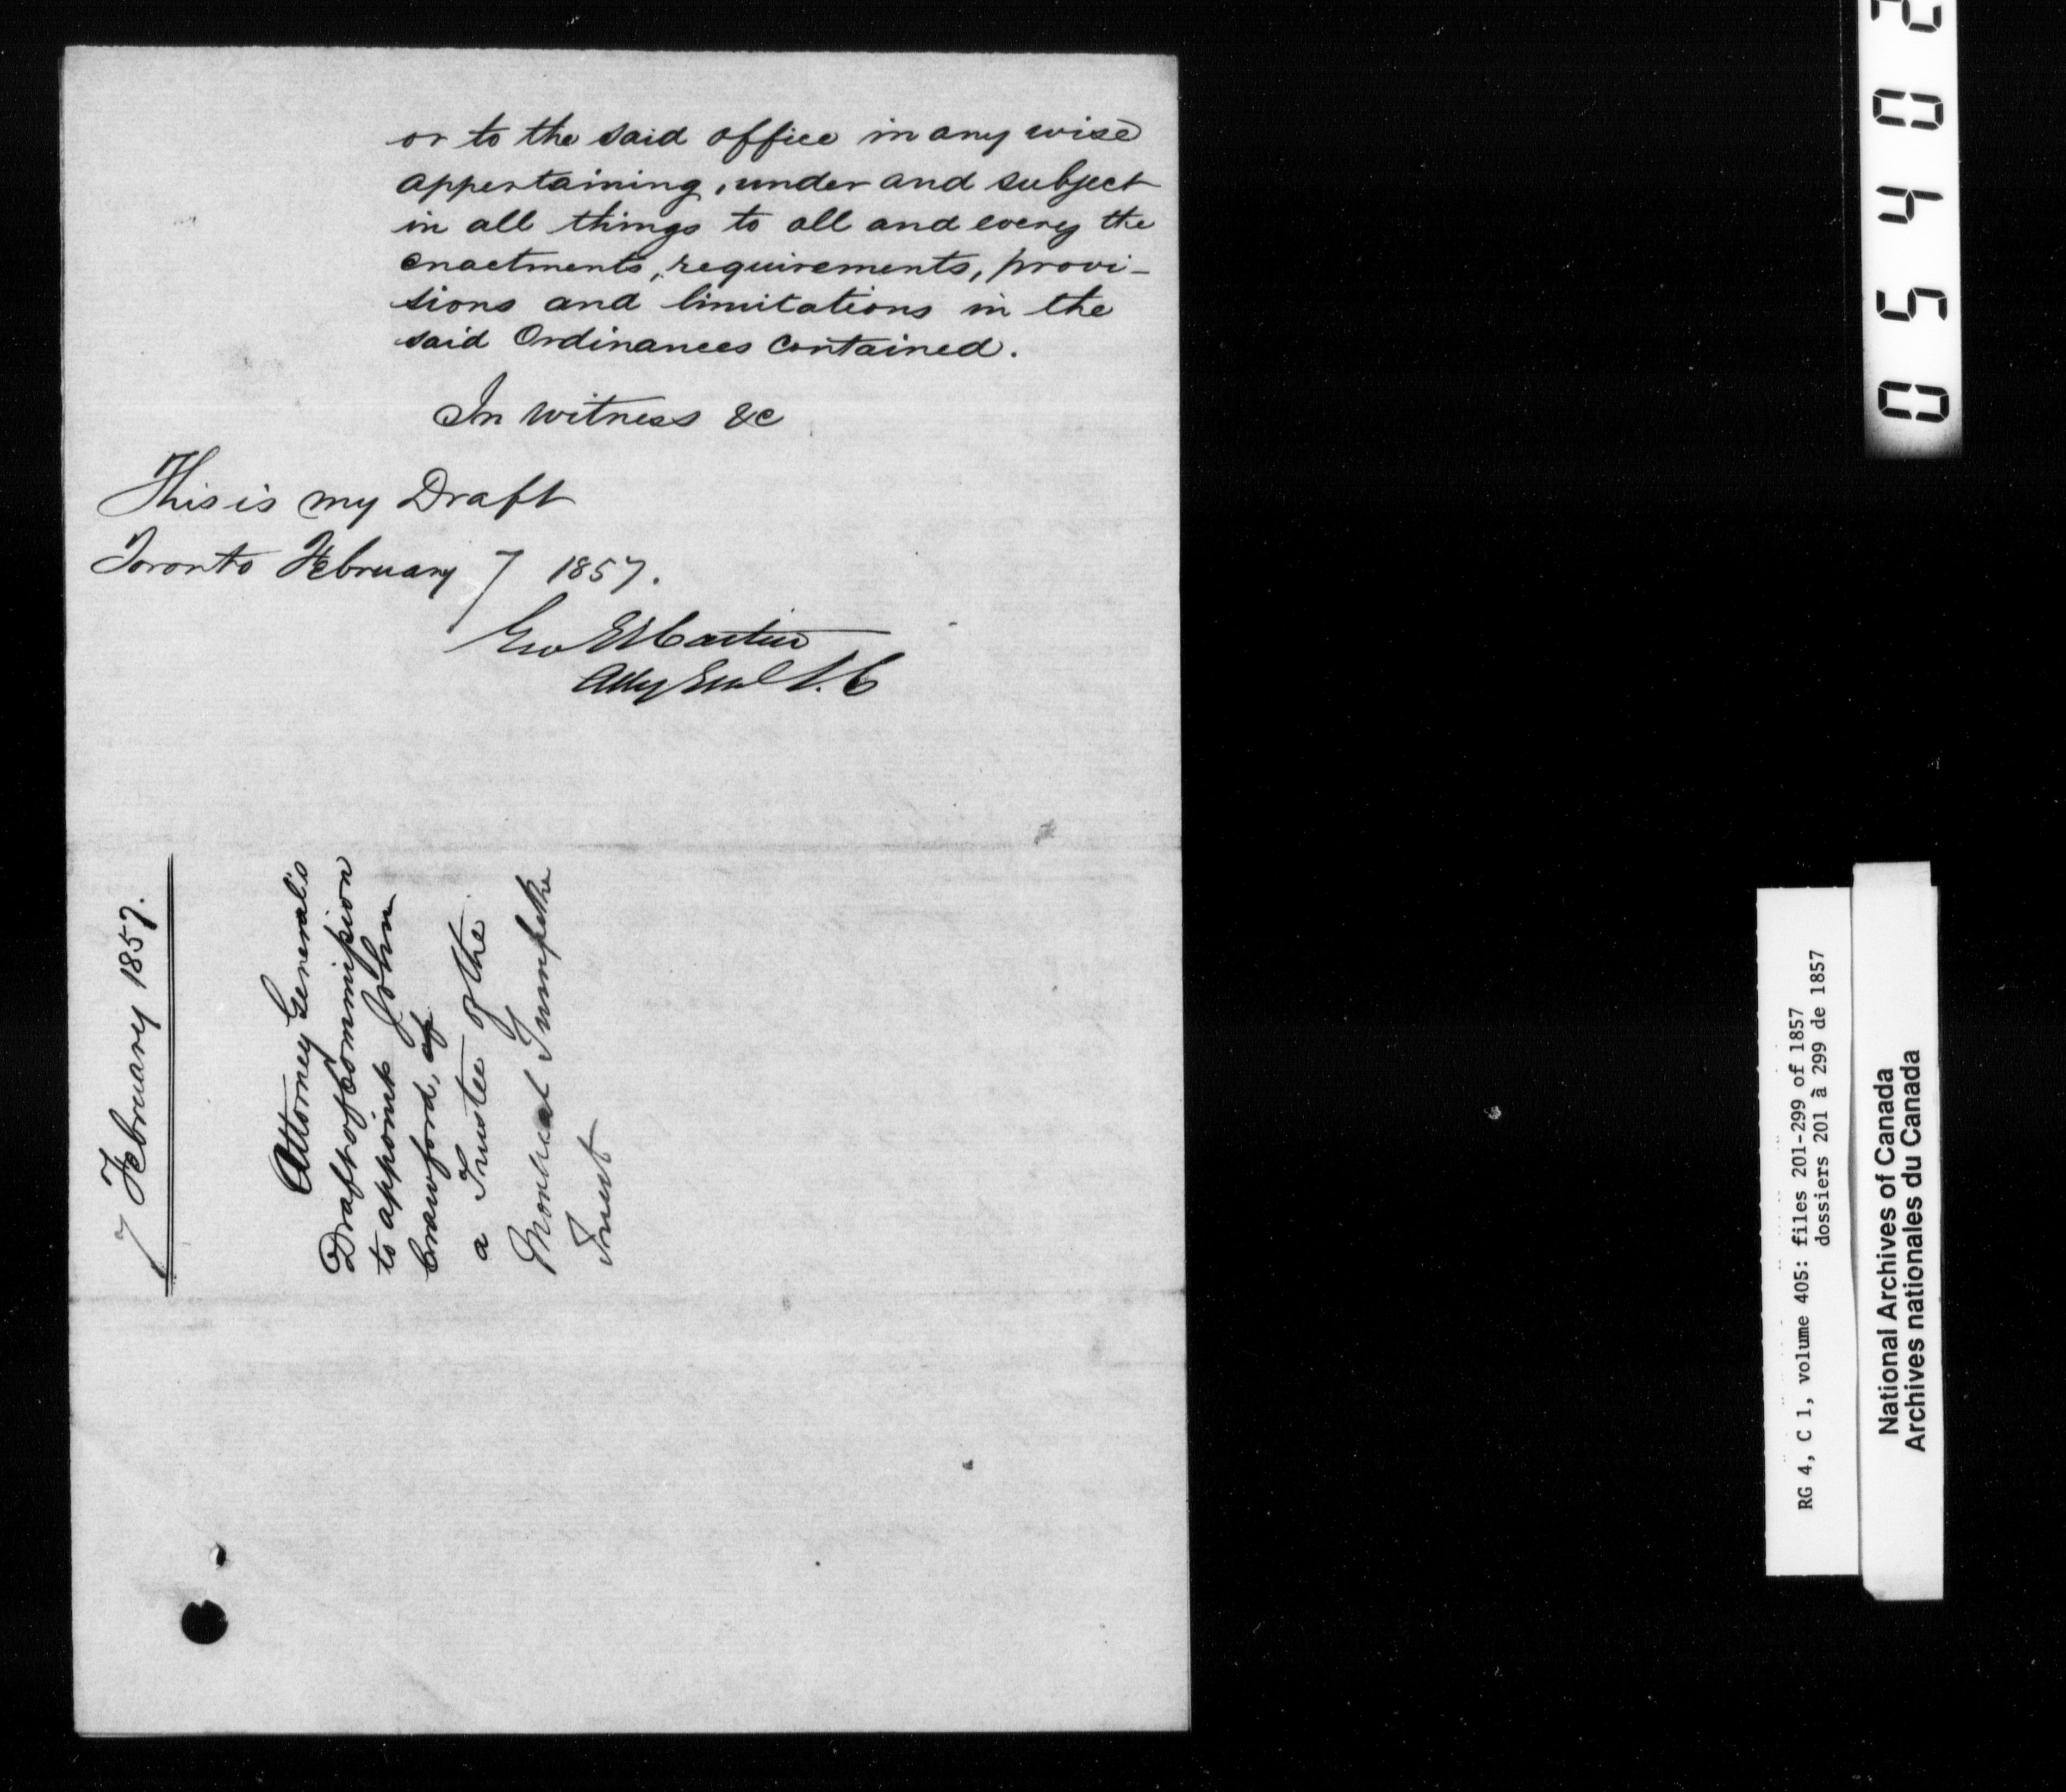 or to the said office in any wise
appertaining, under and subject
in all things to all and every the
enactments, requirements, provi-
sions and limitations in the
said Ordinances contained.
In witness &c
This is my Draft
Toronto February 7 1857.
Geo E Cartier
Atty Genl L.C
7 February 1857.
Attorney General's
Draft of Commission
to appoint John
Crawford, as
a Trustee of the
Montreal Turnpike
Trust
0 5 4 0 2
RG 4, C 1, volume 405: files 201-299 of 1857
dossiers 201 à 299 de 1857
National Archives of Canada
Archives nationales du Canada